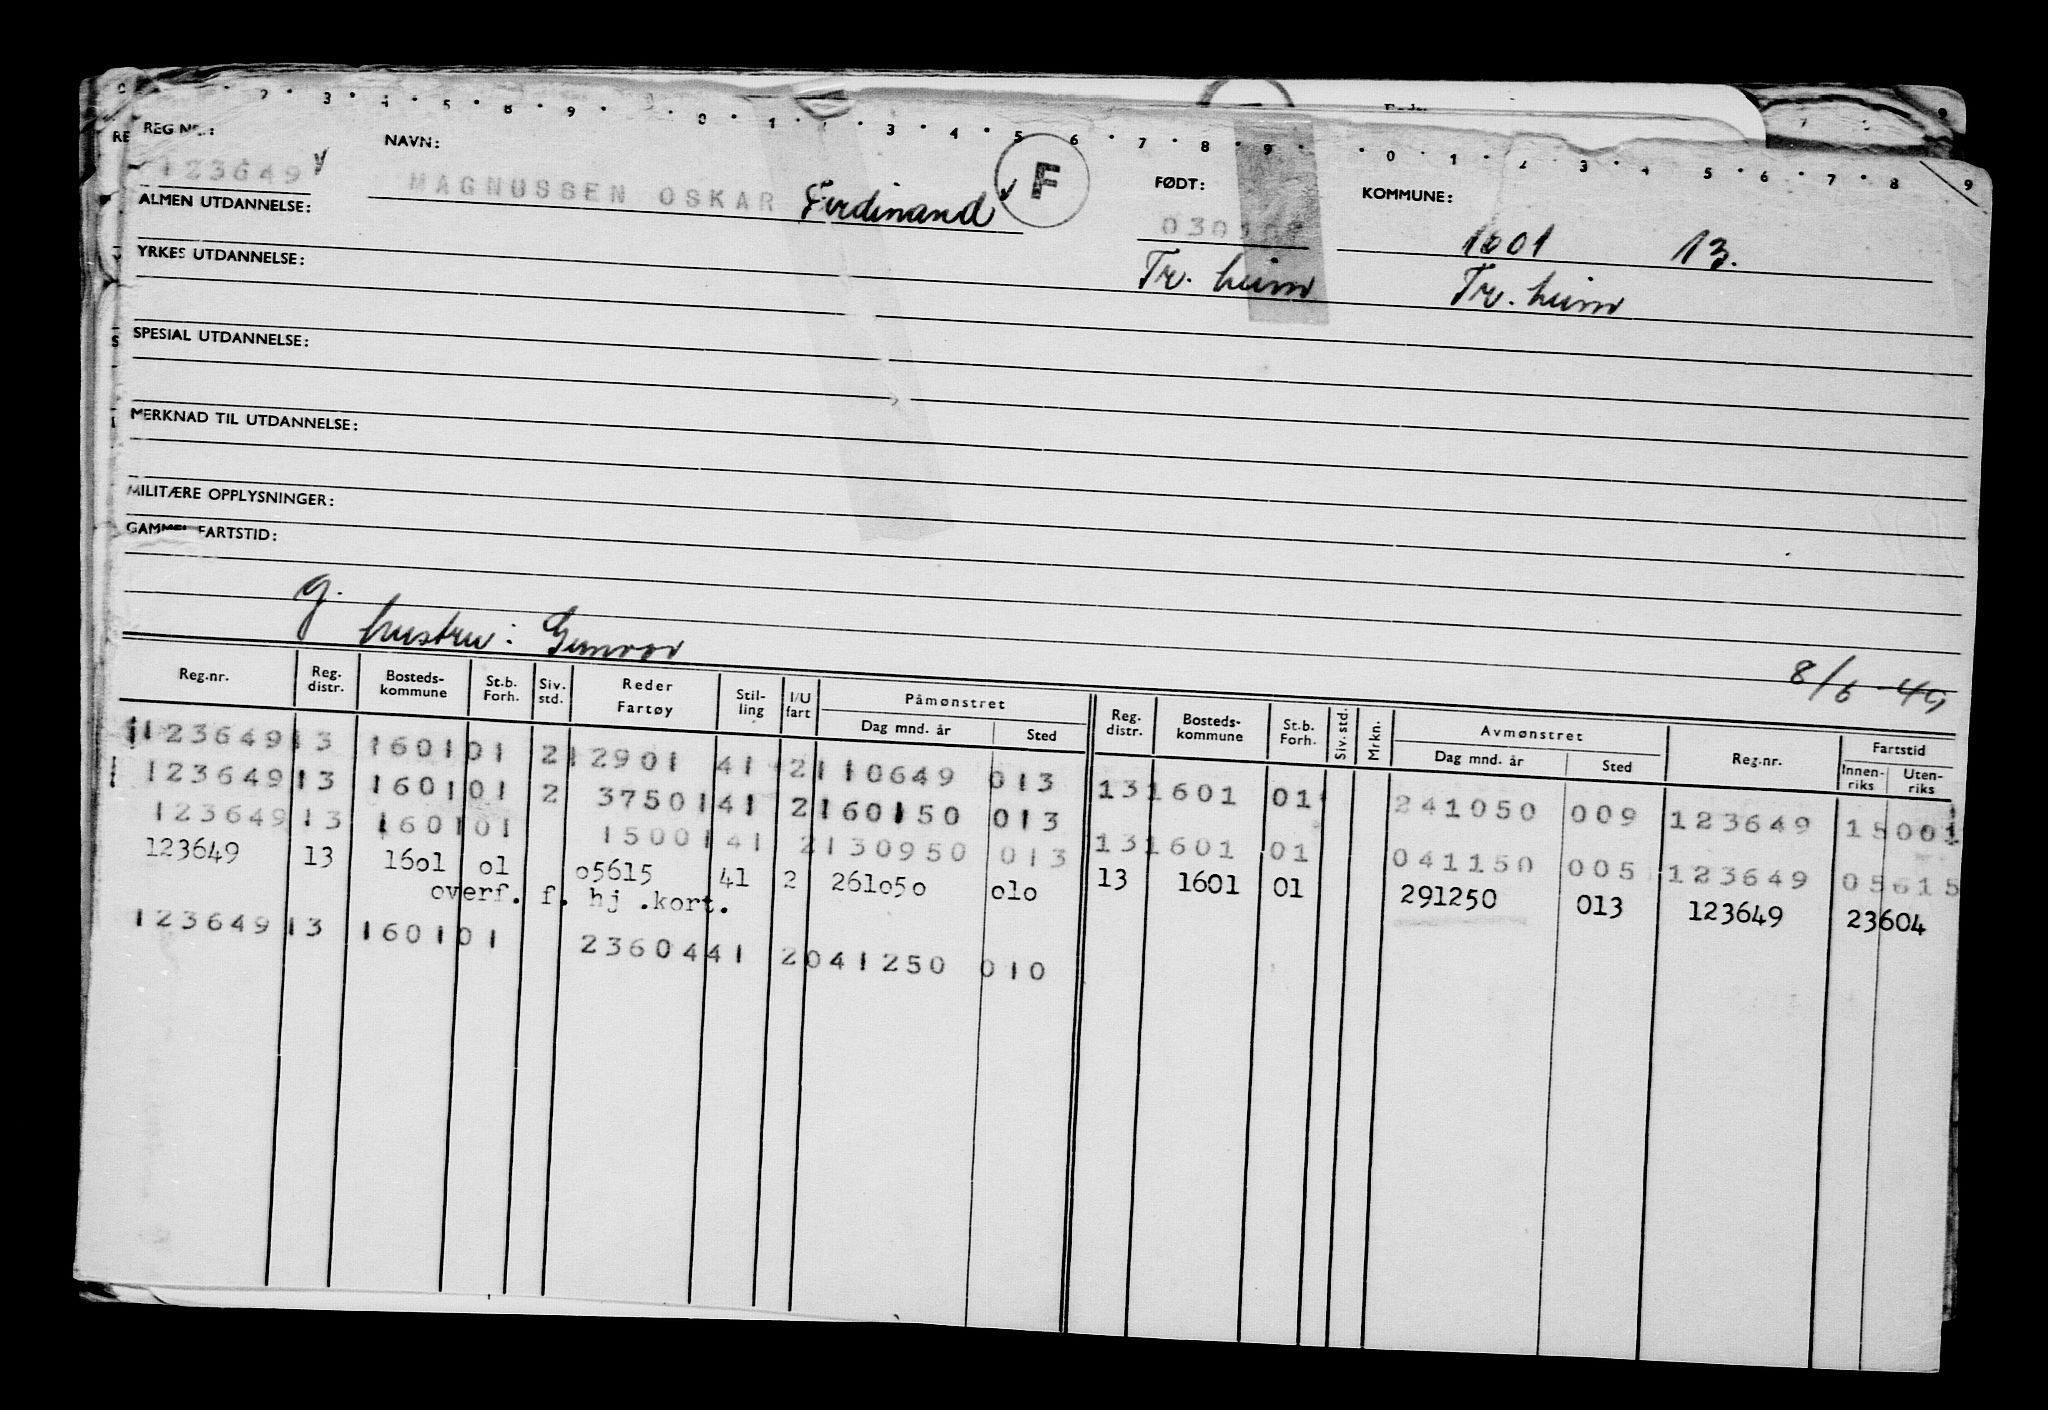 REG NR.: NAVN: FØDT: KOMMUNE:
123649 MAGNUSSEN OSKAR Ferdinand F 1601 13.
ALMEN UTDANNELSE: Tr. heim Tr. heim
YRKES UTDANNELSE:
SPESIAL UTDANNELSE:
MERKNAD TIL UTDANNELSE:
MILITÆRE OPPLYSNINGER:
GAMMEL FARTSTID:
g. hustru: Gunvor
8/6 - 49
Reg.nr. Reg. distr. Bosteds- kommune St.b. Forh. Siv. std. Reder Fartøy Stil- ling I/U fart Påmønstret Dag mnd. år Sted Reg. distr. Bosteds- kommune St.b. Forh. Siv. std. Mrkn. Avmønstret Dag mnd. år Sted Reg.nr. Fartstid Innen- riks Uten- riks
123649 13 1601 01 2 12901 41 2 110649 013
123649 13 1601 01 2 37501 41 2 160150 013 13 1601 01 241050 009 123649 15001
123649 13 1601 01 15001 41 2 130950 013 13 1601 01 041150 005 123649 05615
123649 13 16o1 o1 o5615 41 2 261o5o o1o 13 1601 01 291250 013 123649 23604
overf. f. hj .kort.
123649 13 1601 01 23604 41 2 041250 010